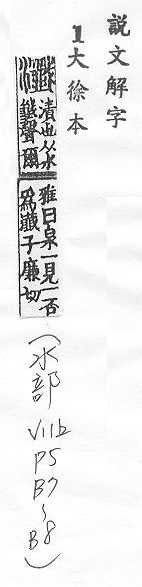 説文解字
1大徐本
瀸
漬也从水
韱聲爾
雅曰泉一見一否
爲瀸子廉切
(水部
VIIb
P5
B7
~
B8)